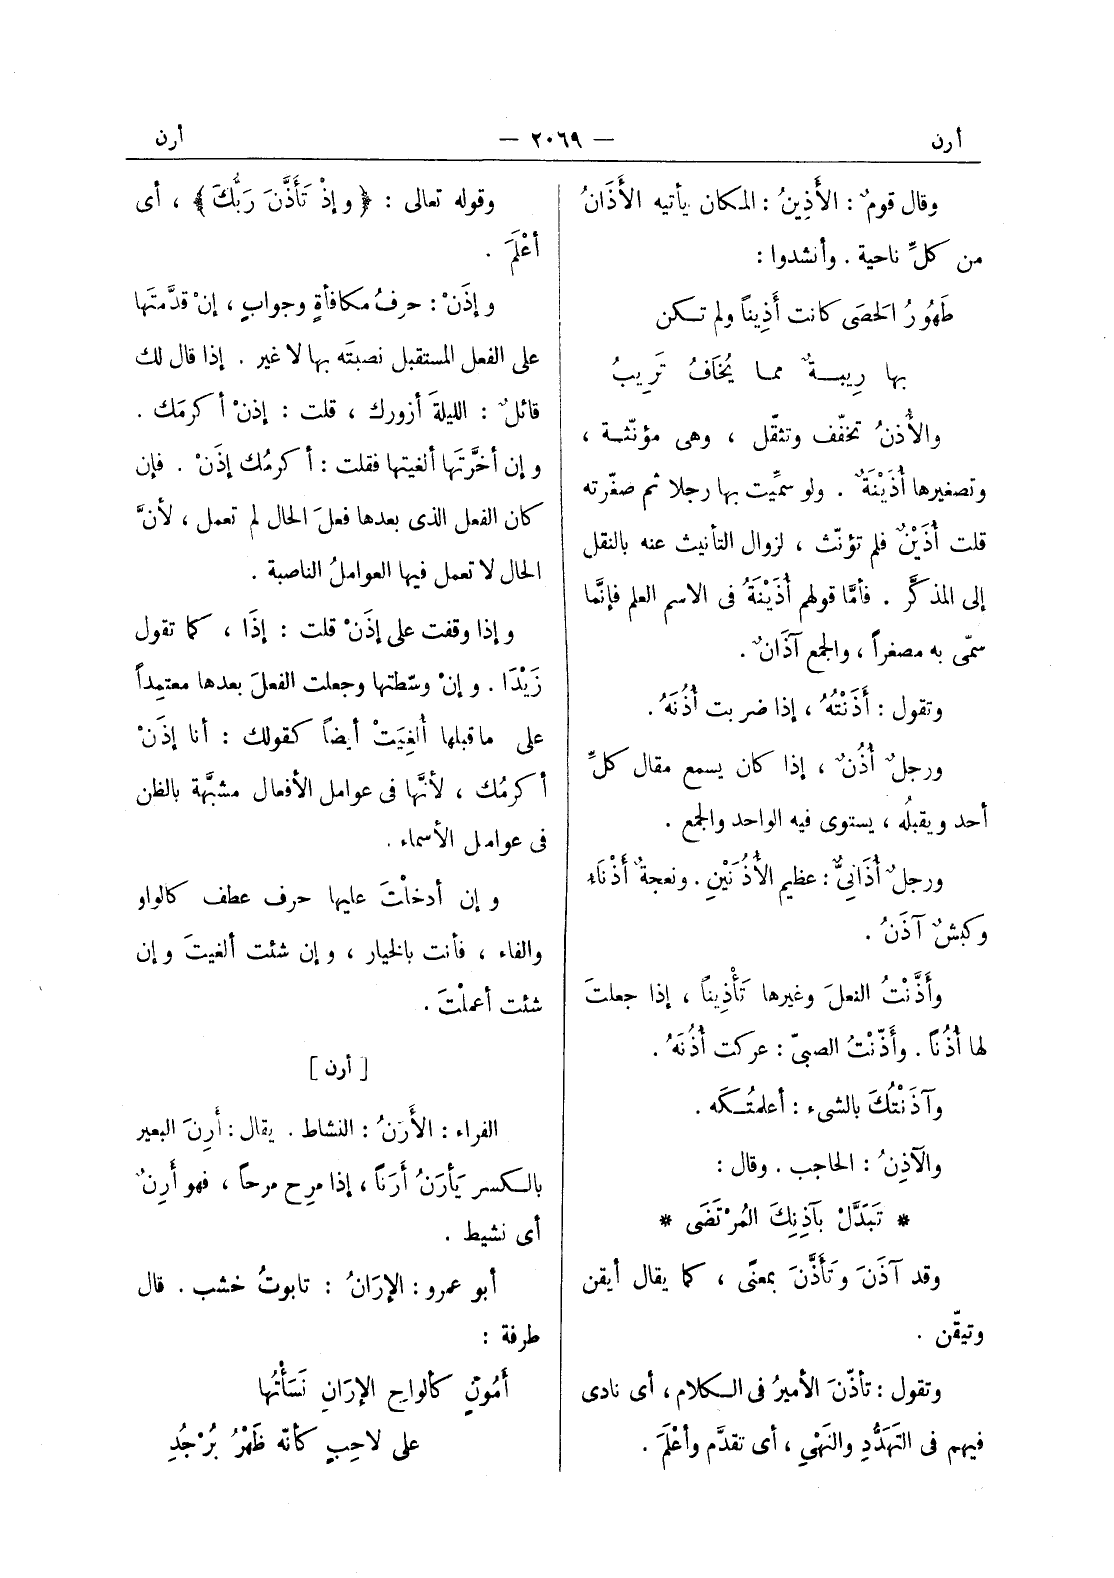 أرن — ٢٠٦٩ — أرن
وقال قومٌ : الأَذِينُ : المكان يأتيه الأَذَانُ
من كلِّ ناحية . وأنشدوا :
طَهُورُ الحَصَى كانت أَذِيناً ولم تكن
بها رِيبةٌ مما يُخَافُ تَرِيبُ
والأُذنُ تخفّف وتثقّل ، وهى مؤنّثة ،
وتصغيرها أُذَيْنَةٌ . ولو سمَّيت بها رجلا ثم صغّرته
قلت أُذَيْنٌ فلم تؤنّث ، لزوال التأنيث عنه بالنقل
إلى المذكَّر . فأمَّا قولهم أُذَيْنَةُ فى الاسم العلم فإنَّما
سمّى به مصغراً ، والجمع آذَانٌ .
وتقول : أَذَنْتُهُ ، إذا ضربت أُذُنَهُ .
ورجلٌ أُذُنٌ ، إذا كان يسمع مقال كلِّ
أحد ويقبلُه ، يستوى فيه الواحد والجمع .
ورجلٌ أُذَانِىٌّ : عظيم الأُذُنَيْنِ . ونعجةٌ أَذْنَاءِ
وكبشٌ آذَنُ .
وأَذَّنْتُ النعلَ وغيرها تَأْذِيناً ، إذا جعلتَ
لها أُذُناً . وأَذّنْتُ الصبىّ : عركت أُذُنَهُ .
وآذَنْتُكَ بالشىء : أعلمتُكَه .
والآذِنُ : الحاجب . وقال :
* تَبَدَّلْ بآذِنِكَ المُرْتَضَى *
وقد آذَنَ وَتَأَذَّنَ بمعنًى ، كما يقال أيقن
وتيقّن .
وتقول : تأذّنَ الأميرُ فى الكلام ، أى نادى
فيهم فى التَهَدُّدِ والنَهْىِ ، أى تقدَّم وأعْلَمَ .
وقوله تعالى : ﴿ وإذْ تَأَذَّنَ رَبُّكَ ﴾ ، أى
أعْلَمَ .
وإذَنْ : حرفُ مكافأةٍ وجوابٍ ، إنْ قدَّمتَها
على الفعل المستقبل نصبتَه بها لا غير . إذا قال لك
قائلٌ : الليلةَ أزورك ، قلت : إذنْ أكرمَك .
وإن أخَّرتَها ألغيتها فقلت : أكرمُك إذَنْ . فإن
كان الفعل الذى بعدها فعلَ الحال لم تعمل ، لأنَّ
الحال لا تعمل فيها العواملُ الناصبة .
وإذا وقفت على إذَنْ قلت : إذَا ، كما تقول
زَيْدَا . وإنْ وسّطتها وجعلت الفعلَ بعدها معتمِداً
على ماقبلها أُلغِيَتْ أيضاً كقولك : أنا إذَنْ
أكرمُك ، لأنَّها فى عوامل الأفعال مشبَّهة بالظن
فى عوامل الأسماء .
وإن أدخلْتَ عليها حرف عطف كالواو
والفاء ، فأنت بالخيار ، وإن شئت ألغيتَ وإن
شئت أعملْتَ .
[ أرن ]
الفراء : الأَرَنُ : النشاط . يقال : أَرِنَ البعير
بالكسر يَأرَنُ أَرَناً ، إذا مرِح مرحاً ، فهو أَرِنٌ
أى نشيط .
أبو عمرو : الإرَانُ : تابوتُ خشب . قال
طرفة :
أَمُونٍ كألواح الإرَانِ نَسَأْتُها
على لاحِبٍ كأنّه ظَهْرُ بُرْجُدِ